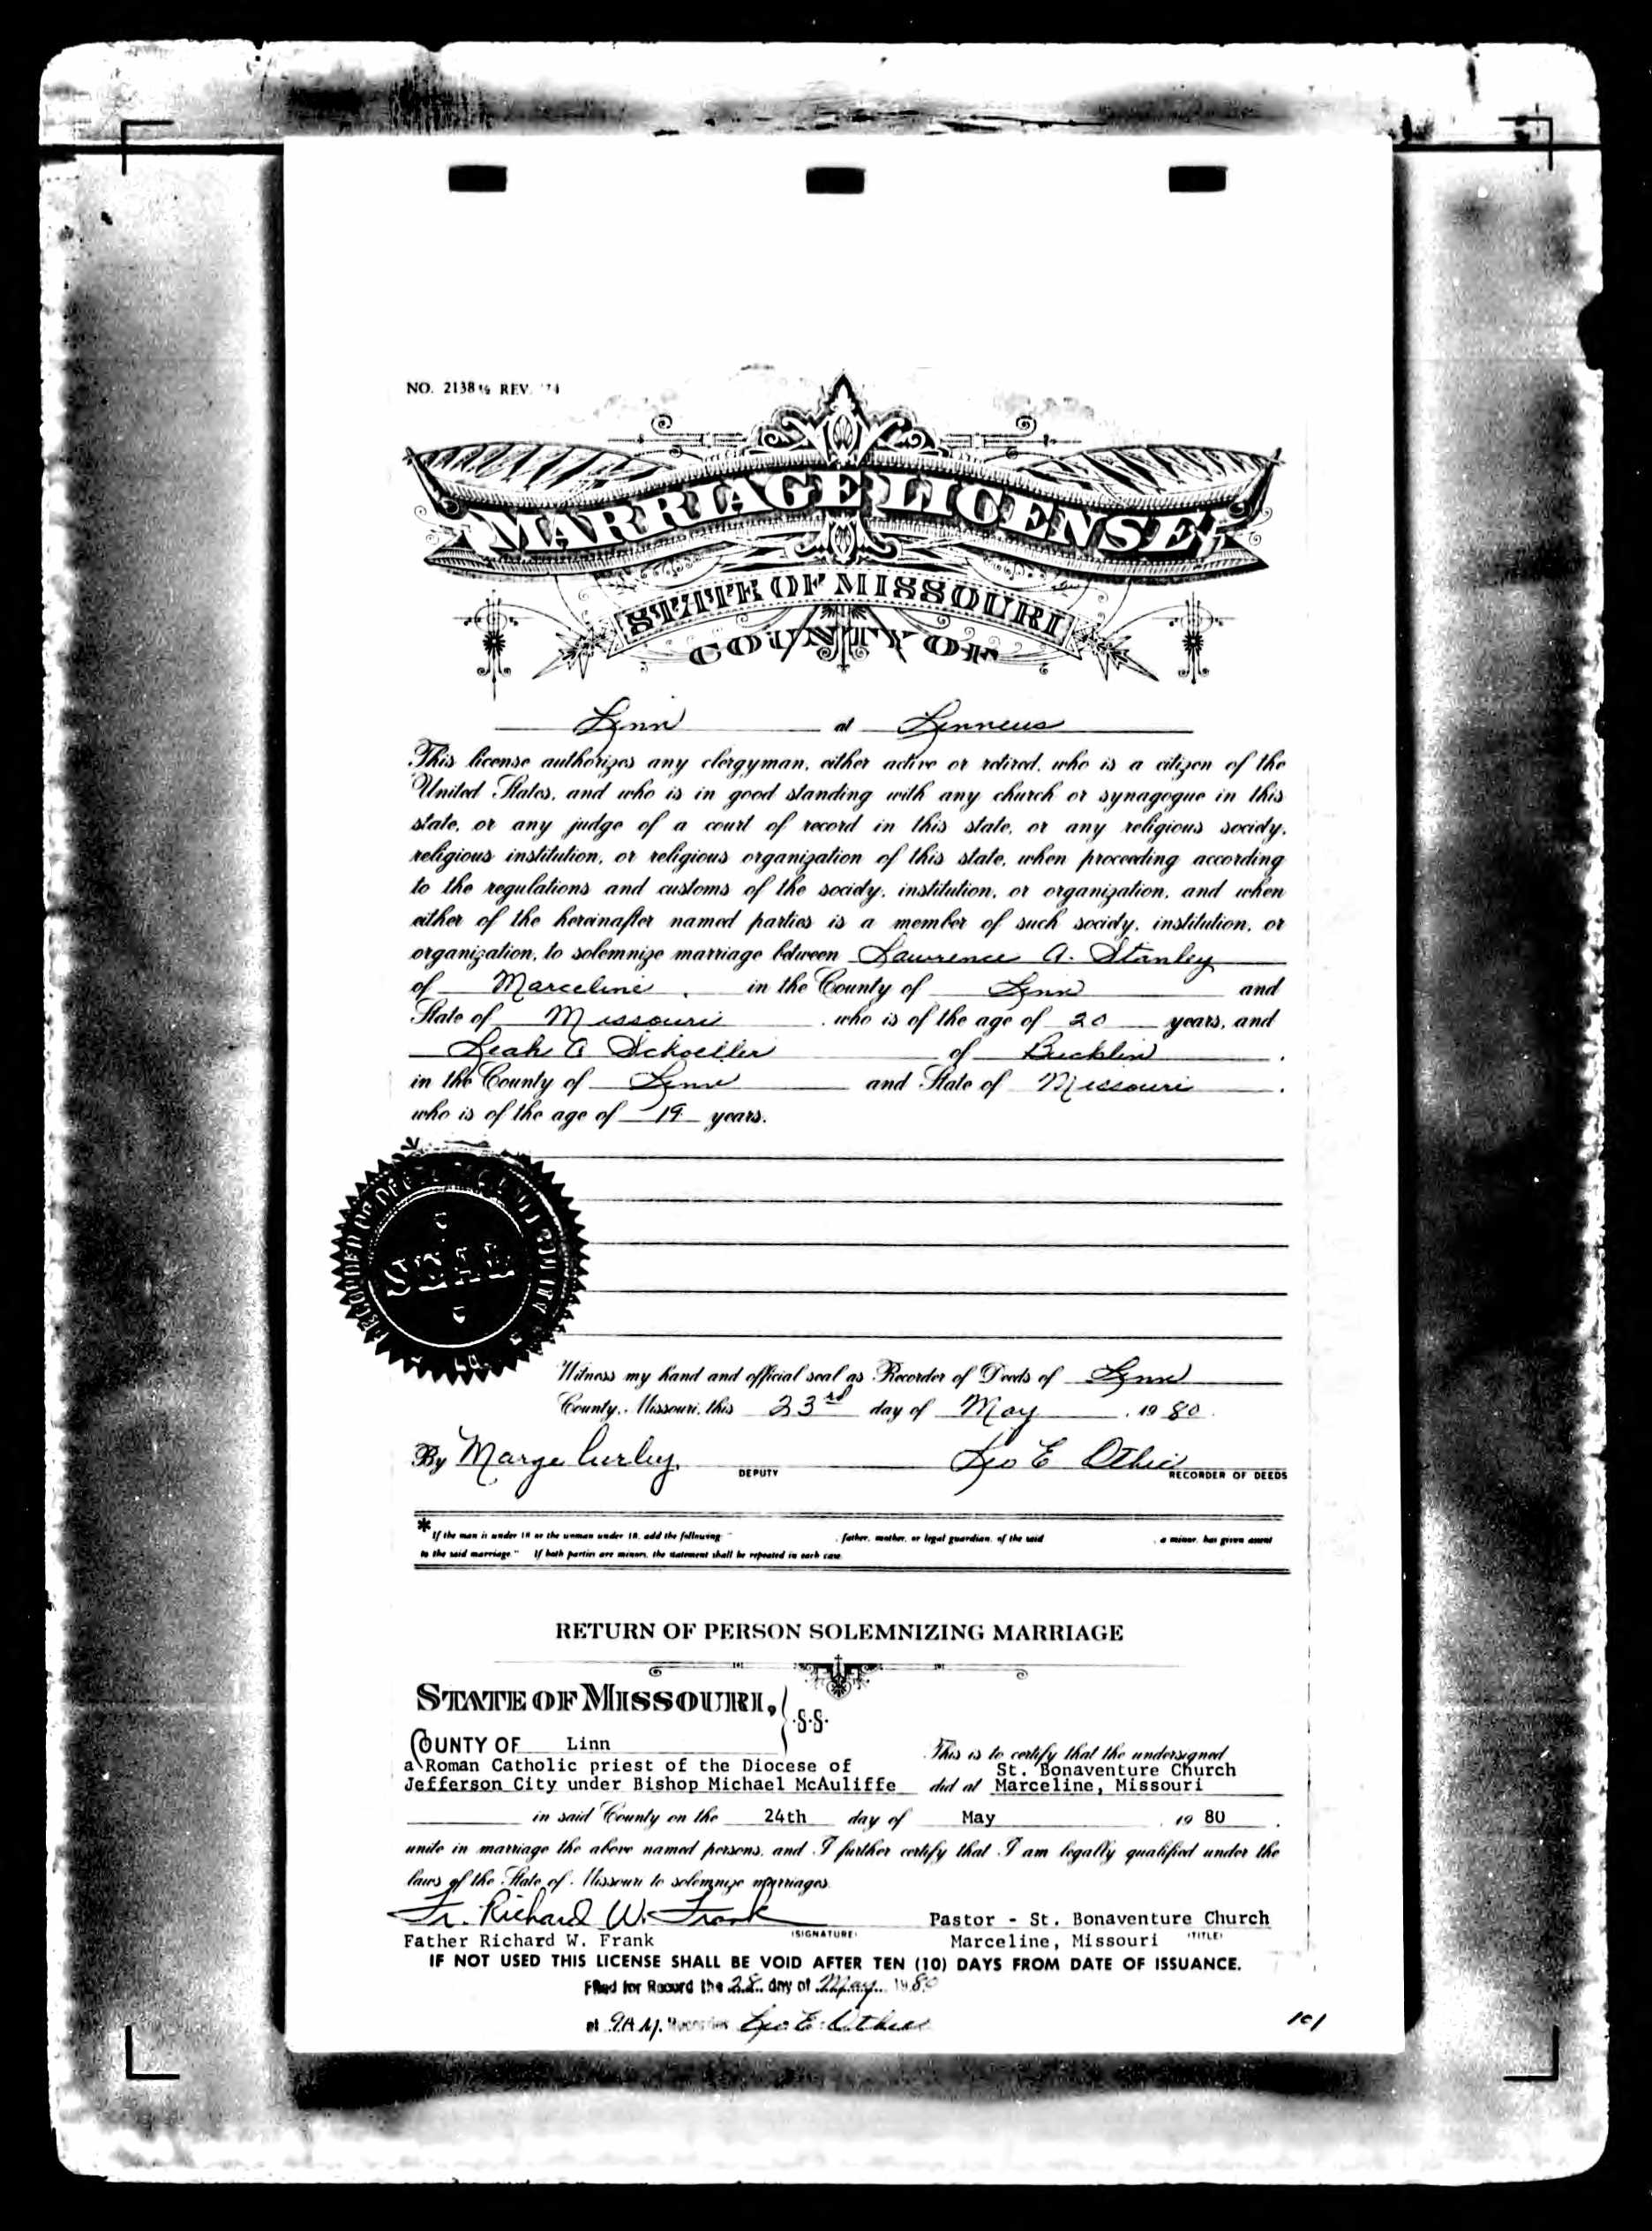 NO. 2138 REV. '74
MARRIAGE LICENSE
STATE OF MISSOURI
COUNTY OF
Linn at Linneus
This license authorizes any clergyman, either active or retired, who is a citizen of the
United States, and who is in good standing with any church or synagogue in this
state, or any judge of a court of record in this state, or any religious society,
religious institution, or religious organization of this state, when proceeding according
to the regulations and customs of the society, institution, or organization, and when
either of the hereinafter named parties is a member of such society, institution, or
organization, to solemnize marriage between Lawrence A. Stanley
of Marceline, in the County of Linn and
State of Missouri, who is of the age of 20 years, and
Leah A Schoeller of Bucklin,
in the County of Linn and State of Missouri,
who is of the age of 19 years.
*
RECORDER OF DEEDS
SEAL
Witness my hand and official seal as Recorder of Deeds of Linn
County, Missouri, this 23rd day of May, 1980.
By Marge Curley, DEPUTY Leo E RECORDER OF DEEDS
* If the man is under 18 or the woman under 18, add the following: " , father, mother, or legal guardian, of the said , a minor, has given assent
to the said marriage." If both parties are minors, the statement shall be repeated in each case.
RETURN OF PERSON SOLEMNIZING MARRIAGE
STATE OF MISSOURI, } S.S.
COUNTY OF Linn This is to certify that the undersigned
a Roman Catholic priest of the Diocese of St. Bonaventure Church
Jefferson City under Bishop Michael McAuliffe did at Marceline, Missouri
in said County on the 24th day of May, 1980.
unite in marriage the above named persons, and I further certify that I am legally qualified under the
laws of the State of Missouri to solemnize marriages.
Fr. Richard W. Frank Pastor - St. Bonaventure Church
Father Richard W. Frank (SIGNATURE) Marceline, Missouri (TITLE)
IF NOT USED THIS LICENSE SHALL BE VOID AFTER TEN (10) DAYS FROM DATE OF ISSUANCE.
Filed for Record the 28 day of May 1980
at 9 A.M. Recorder Leo E.
101